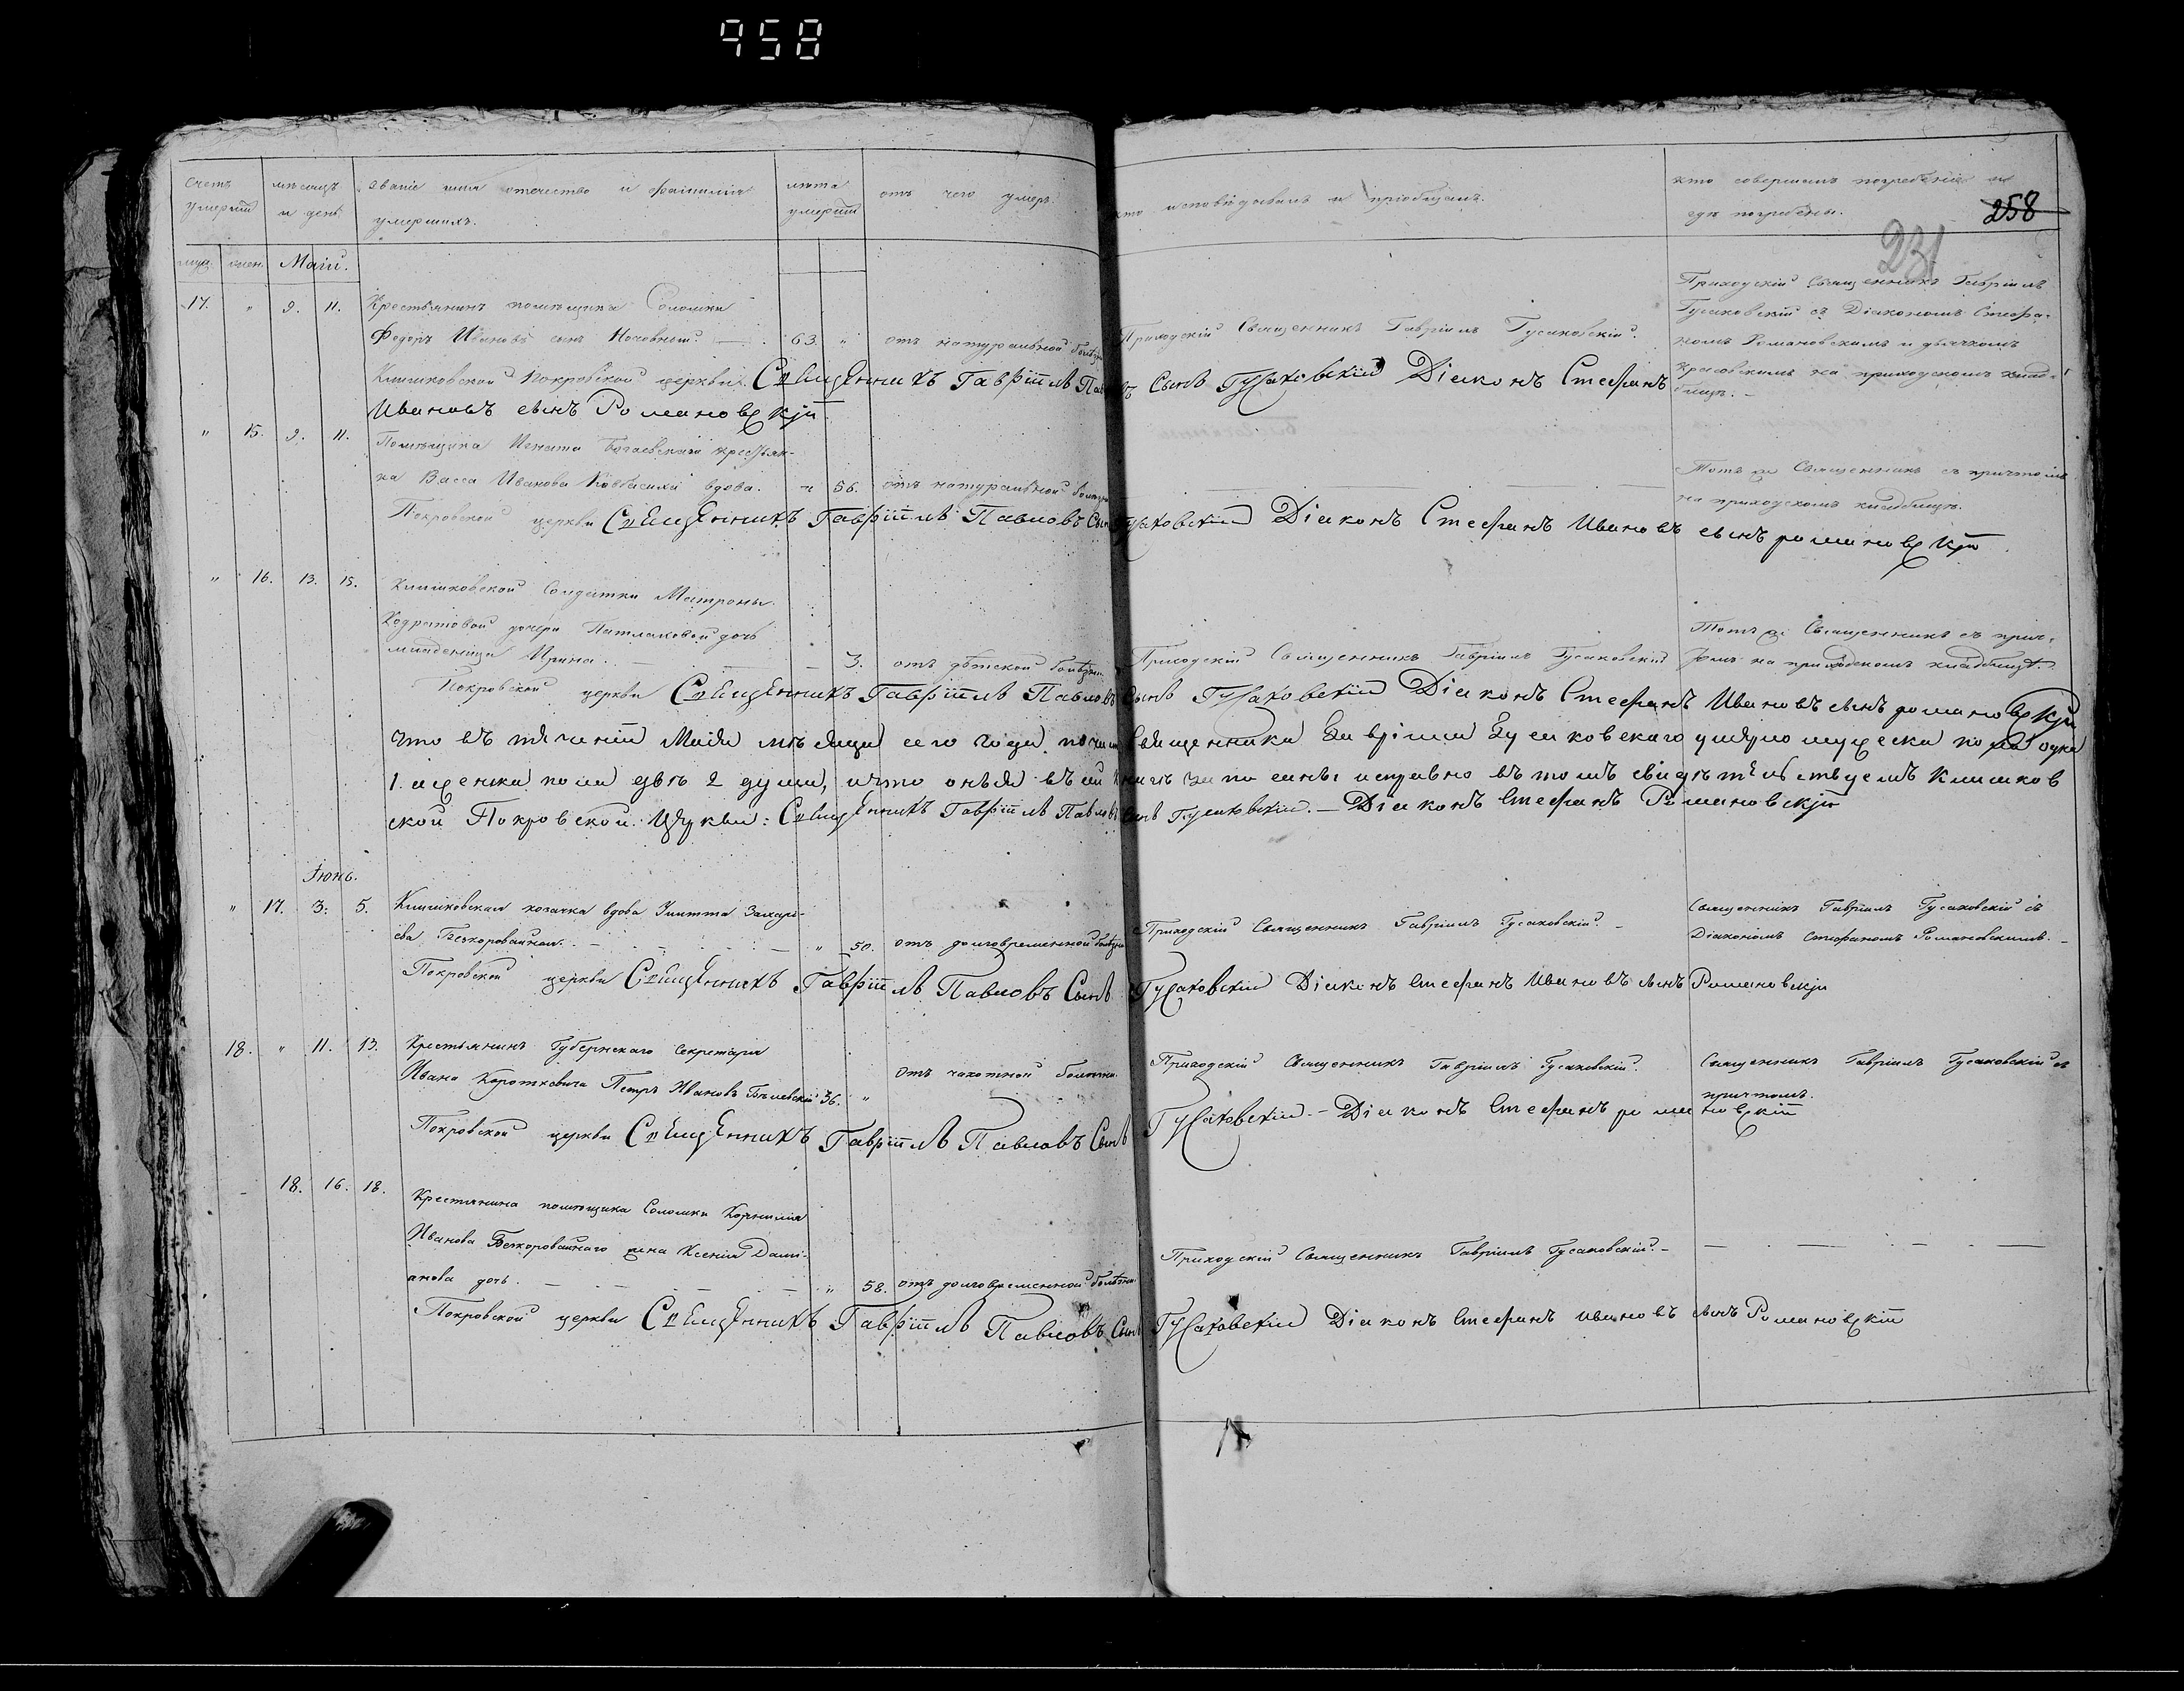 958
счетъ умерш. мѣсяцъ и день. званіе имя отечество и фамилія умершихъ. лѣта умерш. отъ чего умеръ. кто исповѣдывалъ и пріобщалъ. кто совершалъ погребеніе и гдѣ погребены.
258
231
муж. жен. Маій.
17. " 9. 11. Крестьянинъ помѣщика Соломки
Федоръ Ивановъ сынъ 63. " отъ натуральной болѣзни Приходскій Священникъ Гавріилъ Гусаковскій.
Приходскій Священникъ Гавріилъ
Гусаковскій съ Діакономъ Стефа-
номъ Романовскимъ и дьячкомъ
на приходскомъ клад-
бищѣ.
Климковской Покровской церкви Священникъ Гавріилъ Павловъ Сынъ Гусаковскій Діаконъ Стефанъ
Ивановъ сынъ Романовскій
" 15. 9. 11. Помѣщика Игната крестьян-
ка Васса Иванова вдова. " 56. отъ натуральной болѣзни
Тотъ же Священникъ съ причтомъ
на приходскомъ кладбищѣ.
Покровской церкви Священникъ Гавріилъ Павловъ Сынъ Гусаковскій Діаконъ Стефанъ Ивановъ сынъ романовскій
" 16. 13. 15. Климковской Солдатки Матроны
Кодратовой дочери дочь
младеница Ирина. 3. отъ дѣтской болѣзни Приходскій Священникъ Гавріилъ Гусаковскій
Тотъ же Священникъ съ прич-
томъ на приходскомъ кладбищѣ.
Покровской церкви Священникъ Гавріилъ Павловъ Сынъ Гусаковскій Діаконъ Стефанъ Ивановъ сынъ романовскій
что въ течении Маія мѣсяца сего года у священника Гавріила Гусаковскаго умерло мужеска пола одна
1. а женска пола двѣ 2 души, и что оныя въ сіи книгъ записаны исправно въ томъ свидѣтельствуемъ Климков
ской Покровской Церкви: Священникъ Гавріилъ Павловъ сынъ Гусаковскій.— Діаконъ Стефанъ Романовскій
Іюнь.
" 17. 3. 5. Климковская козачка вдова Улитта Захарі-
ева Безкоровайная. " 50. отъ долговременной болѣзни Приходскій Священникъ Гавріилъ Гусаковскій.
Священникъ Гавріилъ Гусаковскій съ
Діакономъ Стефаномъ Романовскимъ.
Покровской церкви Священникъ Гавріилъ Павловъ Сынъ Гусаковскій Діаконъ Стефанъ Ивановъ сынъ Романовскій
18. " 11. 13. Крестьянинъ Губернскаго Секретаря
Ивана Коротковича Петръ Ивановъ 36. " отъ чахотной болѣзни Приходскій Священникъ Гавріилъ Гусаковскій.
Священникъ Гавріилъ Гусаковскій съ
причтомъ.
Покровской церкви Священникъ Гавріилъ Павловъ Сынъ Гусаковскій.— Діаконъ Стефанъ романовскій
18. 16. 18. Крестянина помѣщика Соломки Корнилія
Иванова Безкоровайнаго жена Ксенія Дамі-
анова дочь. " 58. отъ долговременной болѣзни Приходскій Священникъ Гавріилъ Гусаковскій.
Покровской церкви Священникъ Гавріилъ Павловъ Сынъ Гусаковскій Діаконъ Стефанъ ивановъ сынъ Романовскій